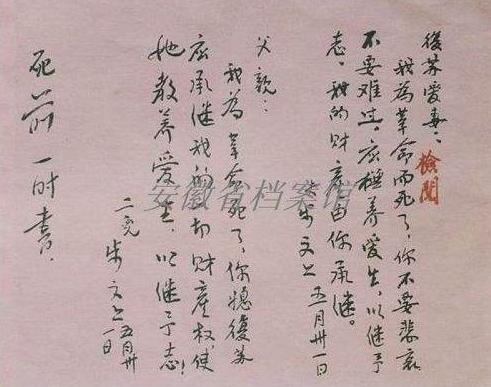 後苏爱妻：
檢閲
我為革命而死了，你不要悲哀
不要难过，应極养爱生，以继予
志。我的财产由你承继。
步文上 五月卅一日
父親：
我為革命死了，你媳復苏
应承继我的切财产权使
她教养爱生，以继予志！
二兒 步文上 五月卅一日
死前一时書.
安徽省档案馆